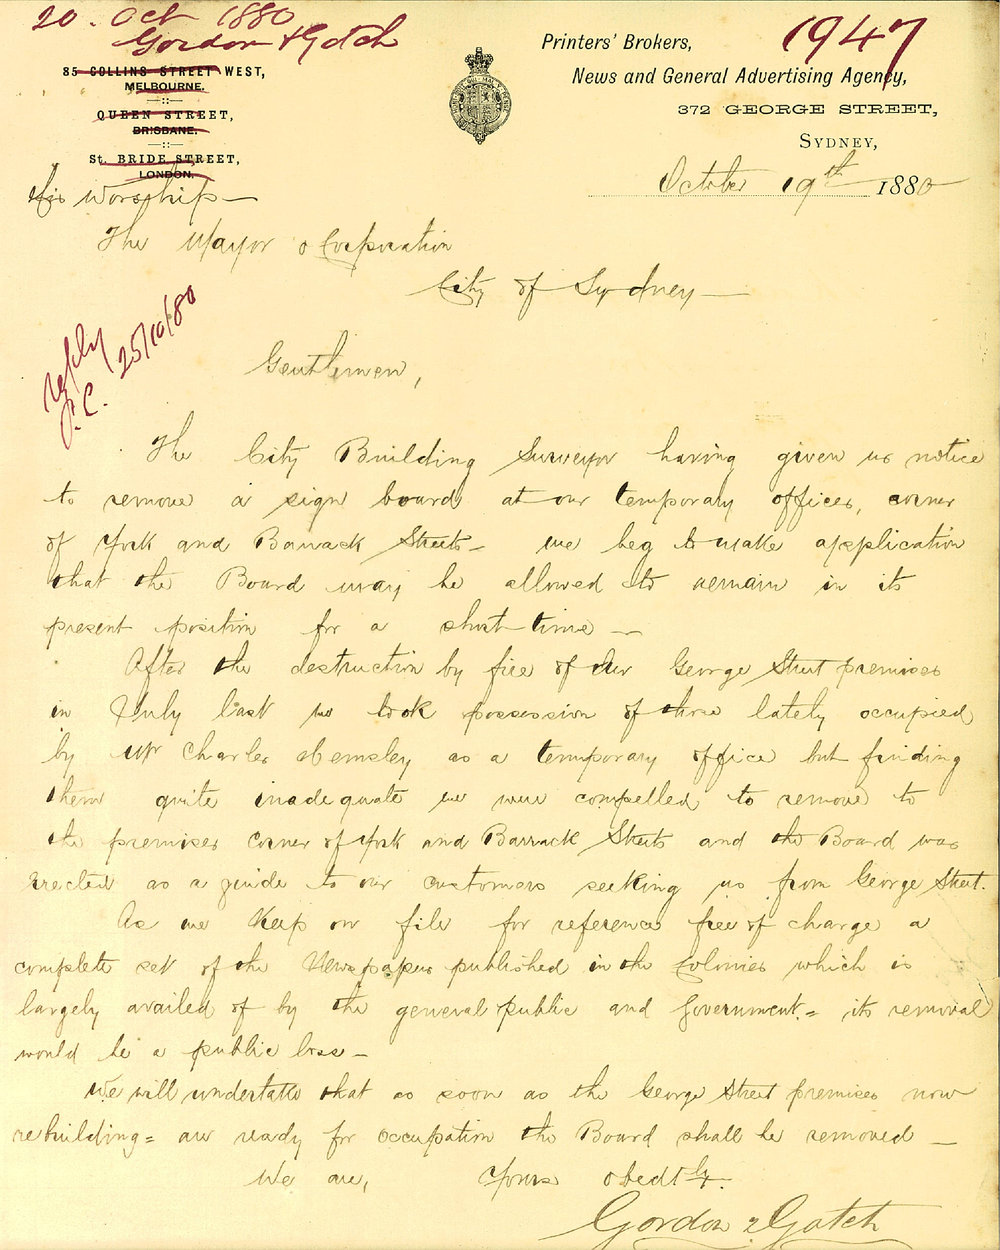 20. Oct 1880
Gordon & Gotch
1947
85 COLLINS STREET WEST,
MELBOURNE.
QUEEN STREET,
BRISBANE.
St. BRIDE STREET,
LONDON.
Printers' Brokers,
News and General Advertising Agency,
372 GEORGE STREET,
SYDNEY,
October 19th 1880
His Worship—
The Mayor & Corporation
City of Sydney—
reply
25/10/80
Gentlemen,
The City Building Surveyor having given us notice
to remove a sign board at our temporary offices, corner
of York and Barrack Streets— we beg to make application
that the Board may be allowed to remain in its
present position for a short time—
After the destruction by fire of our George Street premises
in July last we took possession of those lately occupied
by Mr Charles Hemsley as a temporary office but finding
them quite inadequate we were compelled to remove to
the premises corner of York and Barrack Streets and the Board was
erected as a guide to our customers seeking us from George Street.
As we keep on file for reference free of charge a
complete set of the Newspapers published in the Colonies which is
largely availed of by the general public and Government.= its removal
would be a public loss—
We will undertake that as soon as the George Street premises now
rebuilding= are ready for occupation the Board shall be removed—
We are, Yours obedtly.
Gordon & Gotch